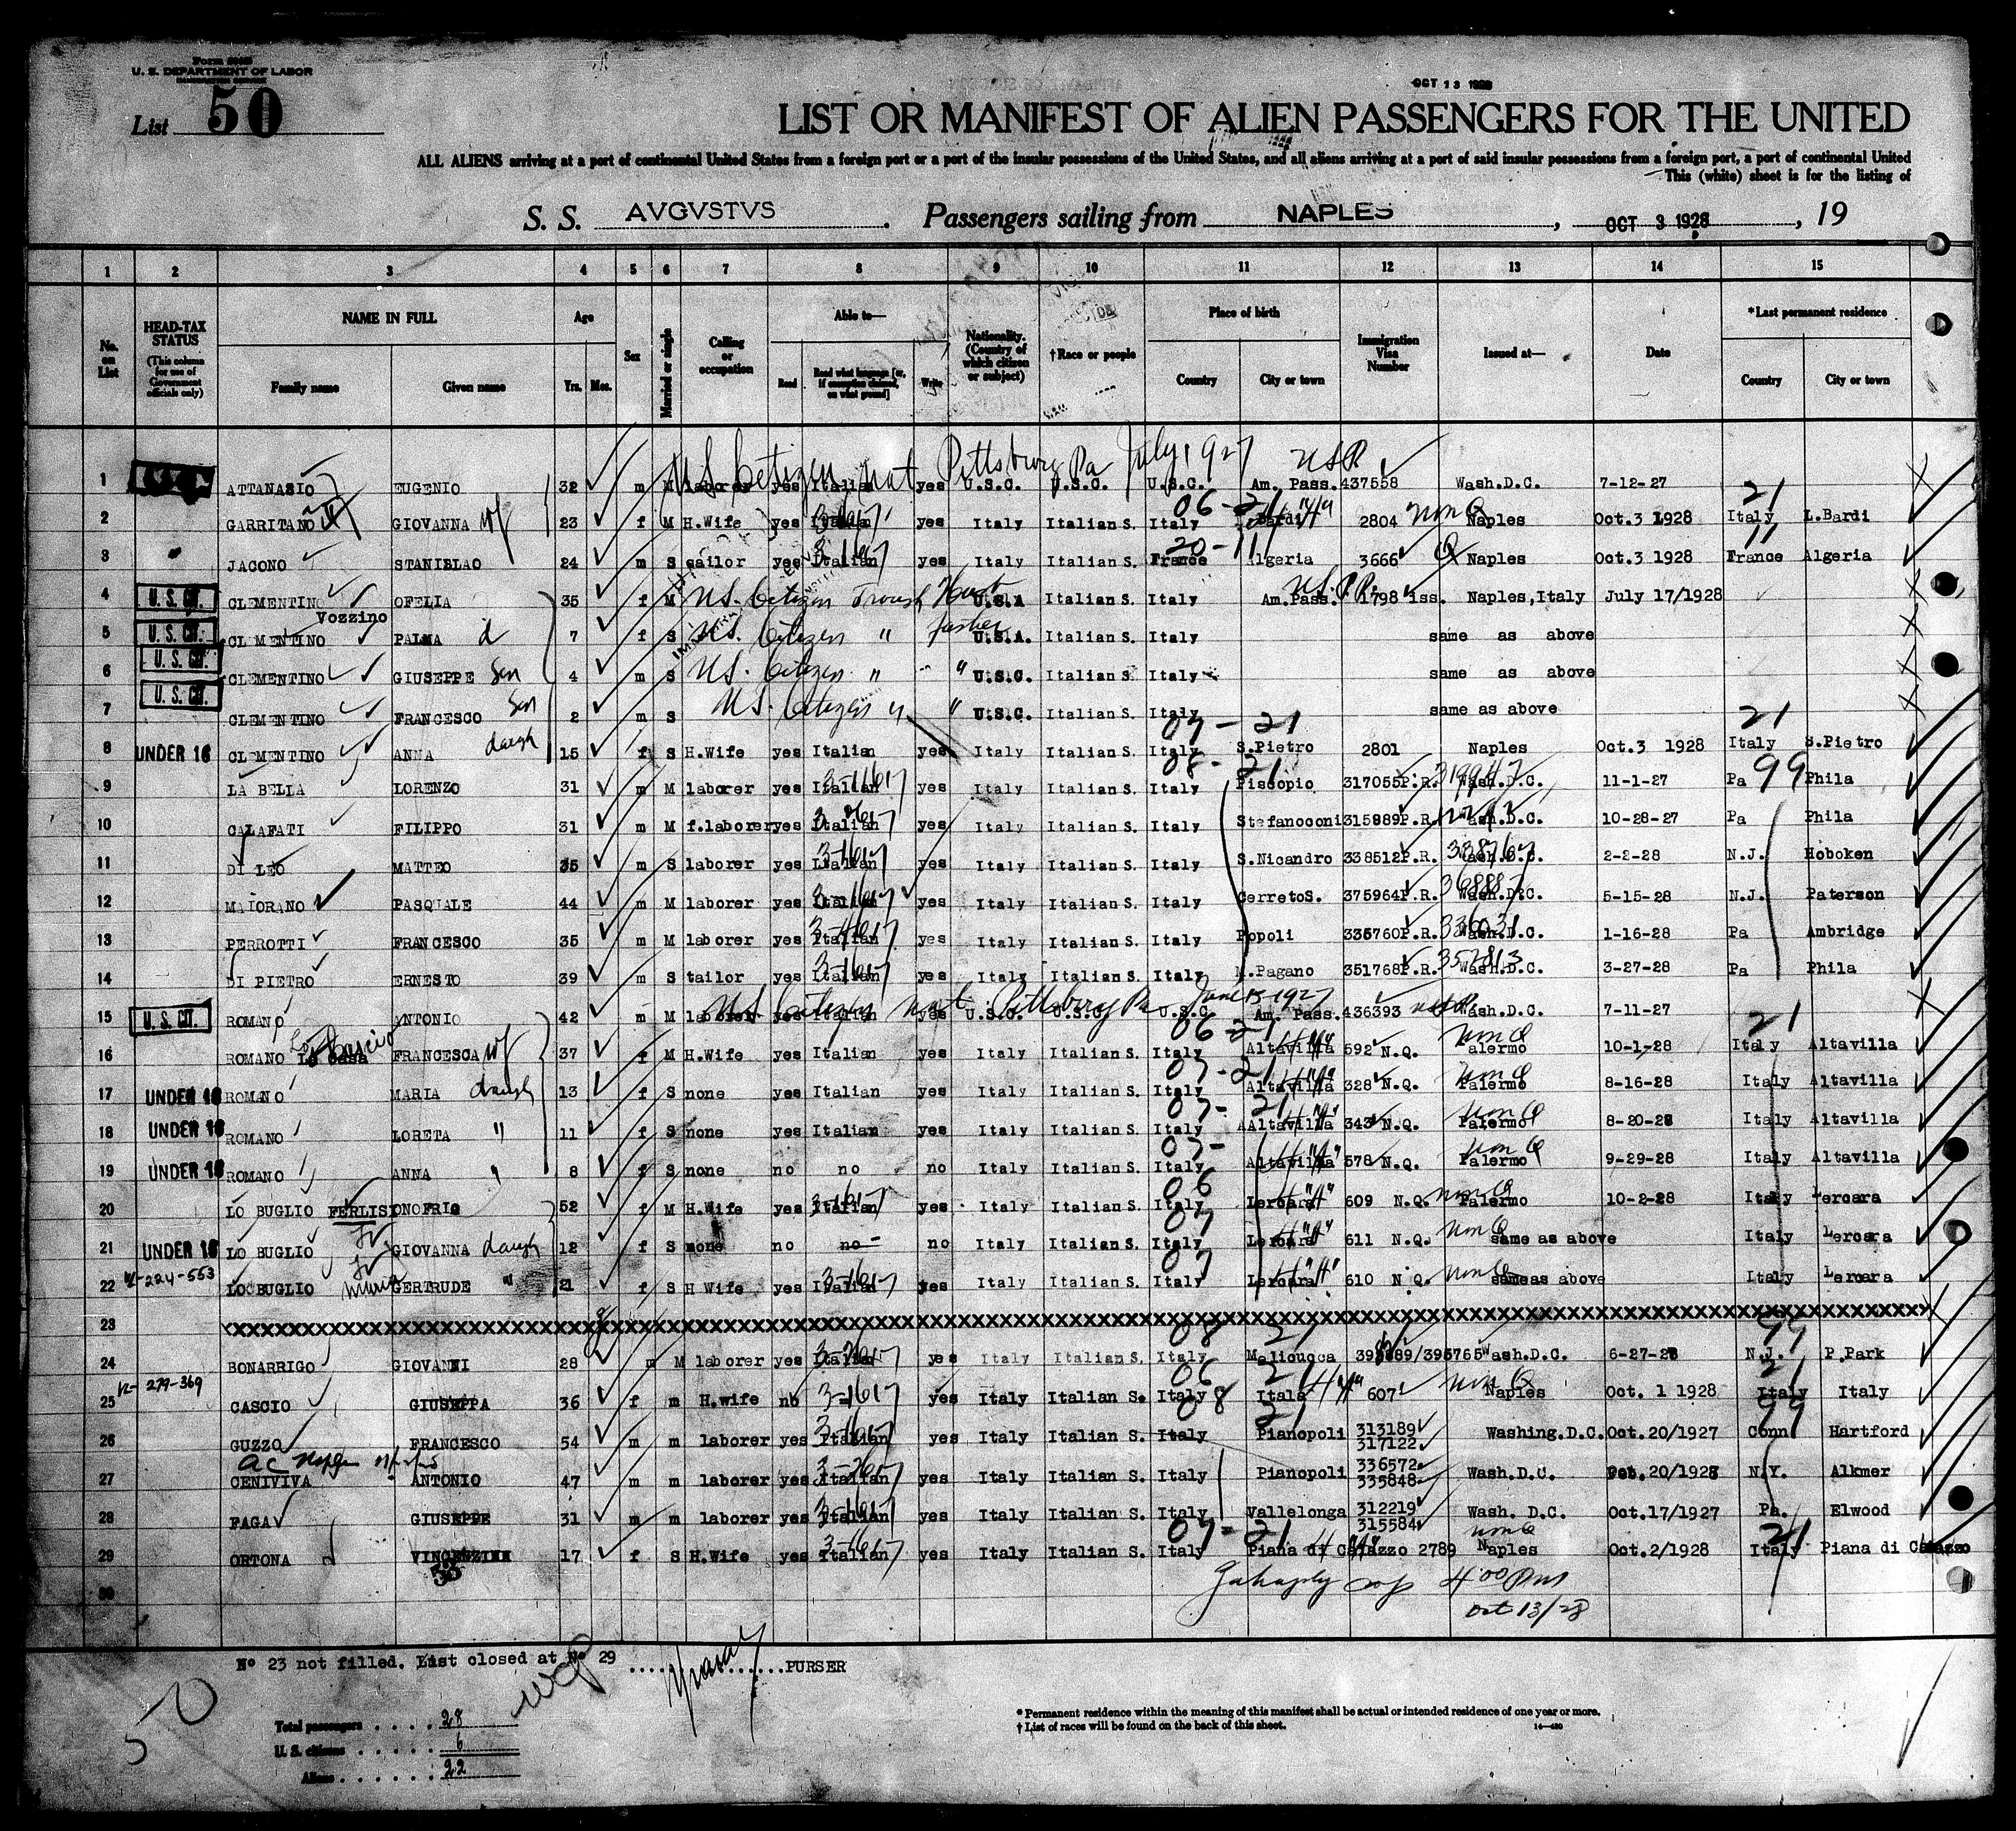 Form
U. S. DEPARTMENT OF LABOR
List 50
OCT 13 1928
LIST OR MANIFEST OF ALIEN PASSENGERS FOR THE UNITED
ALL ALIENS arriving at a port of continental United States from a foreign port or a port of the insular possessions of the United States, and all aliens arriving at a port of said insular possessions from a foreign port, a port of continental United
This (white) sheet is for the listing of
S. S. AVGVSTVS . Passengers sailing from NAPLES , OCT 3 1928 , 19
1 2 3 4 5 6 7 8 9 10 11 12 13 14 15
No. on List
HEAD-TAX STATUS (This column for use of Government officials only)
NAME IN FULL
Family name Given name
Age
Yrs. Mos.
Sex
Married or single
Calling or occupation
Able to—
Read Read what language [or, if exemption claimed, on what ground] Write
Nationality. (Country of which citizen or subject)
†Race or people
Place of birth
Country City or town
Immigration Visa Number
Issued at—
Date
*Last permanent residence
Country City or town
U.S. Citizen nat Pittsburg Pa July 1927
1 ATTANASIO EUGENIO 32 m M laborer yes Italian yes U.S.C. U.S.C. U.S.C. Am. Pass. 437558 Wash.D.C. 7-12-27
2 GARRITANO GIOVANNA wf 23 f M H.Wife yes Italian yes Italy Italian S. Italy 06-21 L.Bardi 2804 Non Q Naples Oct.3 1928 21 Italy L.Bardi
3 JACONO STANISLAO 24 m S sailor yes Italian yes Italy Italian S. France 20-11 Algeria 3666 Q Naples Oct.3 1928 11 France Algeria
4 U.S. CIT. CLEMENTINO Vozzino OFELIA 35 f M U.S. Citizen U.S.A Italian S. Italy Am.Pass. 1798 iss. Naples,Italy July 17/1928
5 U.S. CIT. CLEMENTINO PALMA d 7 f S U.S. Citizen " father U.S.A. Italian S. Italy same as above
6 U.S. CIT. CLEMENTINO GIUSEPPE Son 4 m S U.S. Citizen " " U.S.C. Italian S. Italy same as above
7 U.S. CIT. CLEMENTINO FRANCESCO Son 2 m S U.S. Citizen " " U.S.C. Italian S. Italy same as above
8 UNDER 16 CLEMENTINO ANNA daugh 15 f S H.Wife yes Italian yes Italy Italian S. Italy 07-21 S.Pietro 2801 Naples Oct.3 1928 21 Italy S.Pietro
9 LA BELLA LORENZO 31 m M laborer yes Italian yes Italy Italian S. Italy 08-21 Piscopio 317055P.R. Wash.D.C. 11-1-27 Pa 99 Phila
10 CALAFATI FILIPPO 31 m M f.laborer yes Italian yes Italy Italian S. Italy Stefanoconi 315989P.R. Wash.D.C. 10-28-27 Pa Phila
11 DI LEO MATTEO 35 m S laborer yes Italian yes Italy Italian S. Italy S.Nicandro 338512P.R. Wash.D.C. 2-2-28 N.J. Hoboken
12 MAIORANO PASQUALE 44 m M laborer yes Italian yes Italy Italian S. Italy CerretoS. 375964P.R. Wash.D.C. 5-15-28 N.J. Paterson
13 PERROTTI FRANCESCO 35 m M laborer yes Italian yes Italy Italian S. Italy Popoli 335760P.R. Wash.D.C. 1-16-28 Pa Ambridge
14 DI PIETRO ERNESTO 39 m S tailor yes Italian yes Italy Italian S. Italy M.Pagano 351768P.R. 352813 Wash.D.C. 3-27-28 Pa Phila
U.S. Citizen nat. Pittsburg Pa June 15-1927
15 U.S. CIT. ROMANO ANTONIO 42 m M laborer yes Italian yes U.S.C. U.S.C. U.S.C. Am. Pass. 436393 Wash.D.C. 7-11-27
16 ROMANO Lo Casa Lo Cascio FRANCESCA wf 37 f M H.Wife yes Italian yes Italy Italian S. Italy 06-21 Altavilla 592 N.Q. Non Q Palermo 10-1-28 21 Italy Altavilla
17 UNDER 16 ROMANO MARIA daugh 13 f S none yes Italian yes Italy Italian S. Italy 07-21 Altavilla 328 N.Q. Non Q Palermo 8-16-28 Italy Altavilla
18 UNDER 16 ROMANO LORETA " 11 f S none yes Italian yes Italy Italian S. Italy 07-21 Altavilla 343 N.Q. Non Q Palermo 8-20-28 Italy Altavilla
19 UNDER 16 ROMANO ANNA " 8 f S none no no no Italy Italian S. Italy 07- Altavilla 578 N.Q. Non Q Palermo 9-29-28 Italy Altavilla
20 LO BUGLIO FERLISI ONOFRIO 52 f M H.Wife yes Italian yes Italy Italian S. Italy 06 Lercara 609 N.Q. Non Q Palermo 10-2-28 Italy Lercara
21 UNDER 16 LO BUGLIO GIOVANNA daugh 12 f S none no no no Italy Italian S. Italy 07 Lercara 611 N.Q. Non Q same as above Italy Lercara
22 12-224-553 LO BUGLIO GERTRUDE " 21 f S H Wife yes Italian yes Italy Italian S. Italy 07 Lercara 610 N Q. Non Q sameas above Italy Lercara
23 XXXXXXXXXXXXXXXXXXXXXXXXXXXXXXXXXXXXXXXX
24 BONARRIGO GIOVANNI 28 m M laborer yes Italian yes Italy Italian S. Italy 08 21 Melicucca Wash.D.C. 6-27-28 99 N.J. P.Park
25 12-279-369 CASCIO GIUSEPPA 36 f m H.wife no yes Italy Italian S. Italy 06 21 Itala 607 Non Q Naples Oct. 1 1928 21 Italy Italy
26 GUZZO FRANCESCO 54 m m laborer yes Italian yes Italy Italian S. Italy 08 21 Pianopoli 313189 317122 Washing.D.C. Oct.20/1927 99 Conn Hartford
27 CENIVIVA ANTONIO 47 m m laborer yes Italian yes Italy Italian S. Italy Pianopoli 336572 335848 Wash.D.C. Feb.20/1928 N.Y. Alkmer
28 FAGA GIUSEPPE 31 m m laborer yes Italian yes Italy Italian S. Italy Vallelonga 312219 315584 Wash. D.C. Oct.17/1927 Pa. Elwood
29 ORTONA 17 f S H.Wife yes Italian yes Italy Italian S. Italy 07-21 Piana di Cajazzo 2789 Non Q Naples Oct.2/1928 21 Italy Piana di
30 4 00 PM
Oct 13/28
Nº 23 not filled. List closed at Nº 29 ................PURSER
50
Total passengers . . . . 28
U. S. citizens . . . . . 6
Aliens . . . . . . 22
* Permanent residence within the meaning of this manifest shall be actual or intended residence of one year or more.
† List of races will be found on the back of this sheet.